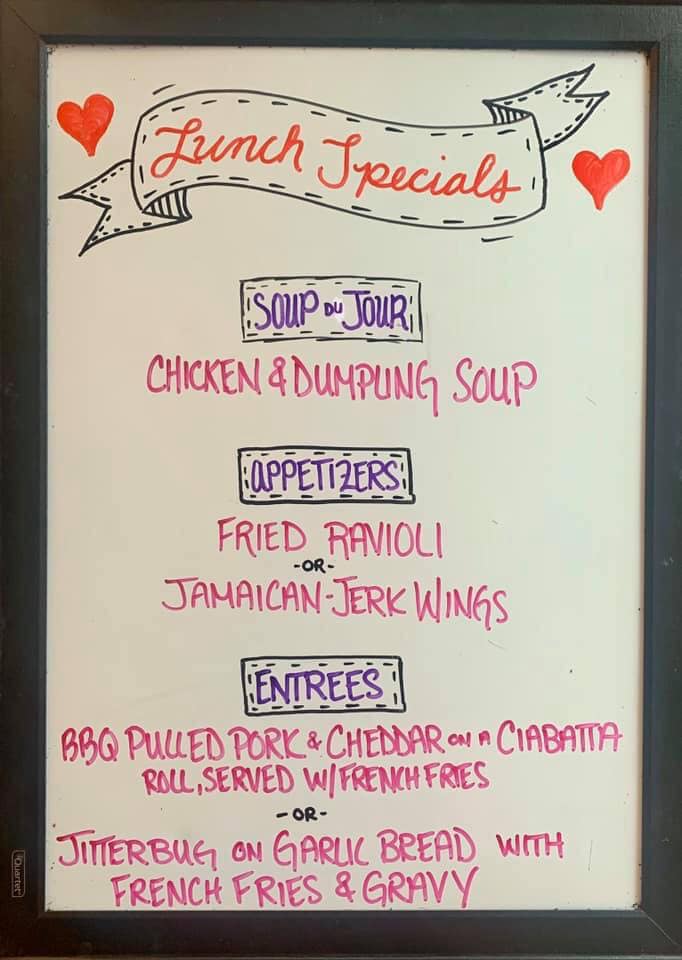 Lunch Specials
SOUP DU JOUR
CHICKEN & DUMPLING SOUP
APPETIZERS
FRIED RAVIOLI
-OR-
JAMAICAN-JERK WINGS
ENTREES
BBQ PULLED PORK & CHEDDAR ON A CIABATTA
ROLL, SERVED W/FRENCH FRIES
-OR-
JITTERBUG ON GARLIC BREAD WITH
FRENCH FRIES & GRAVY
Quartet